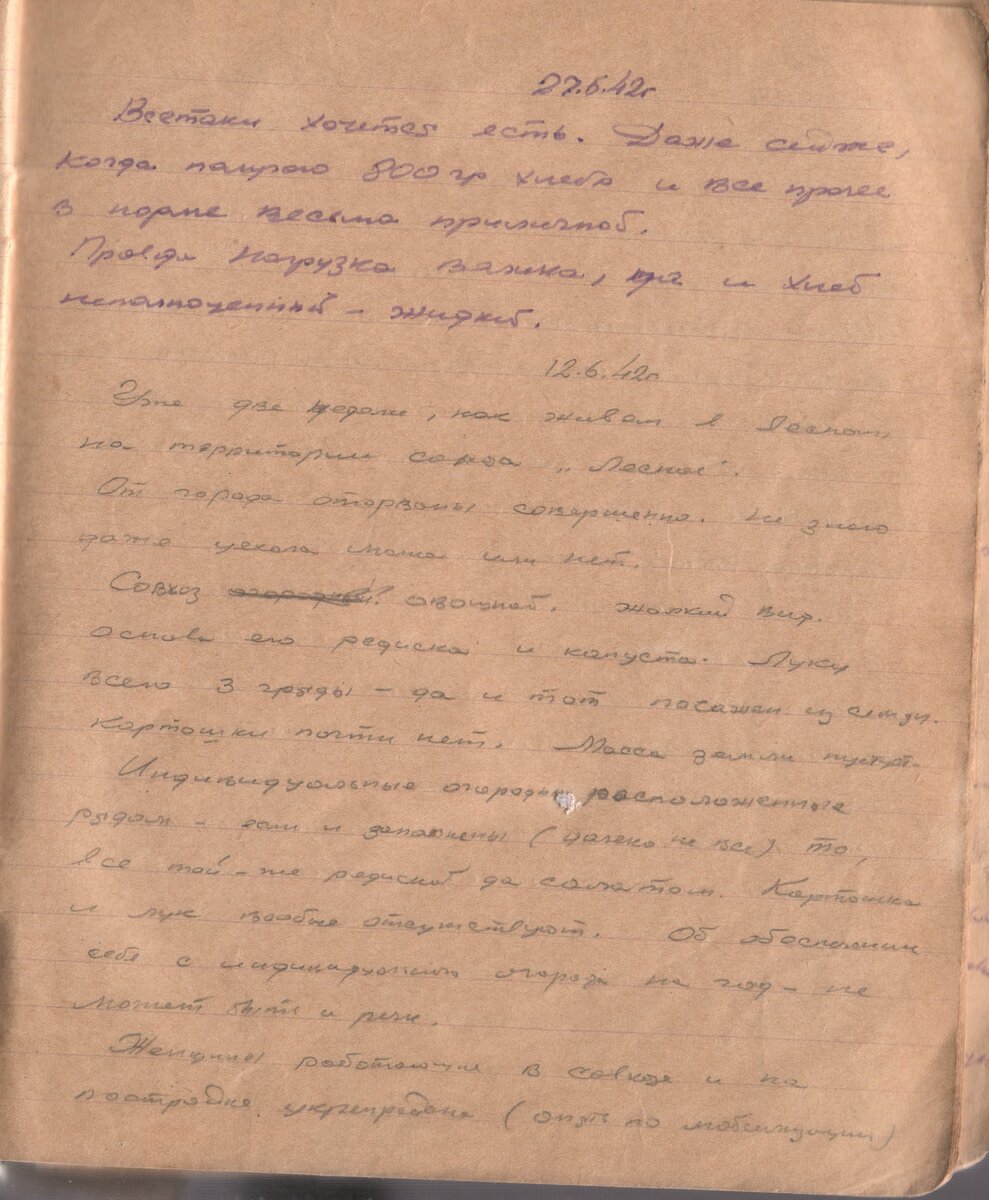 27.5.42г
Всетаки хочется есть. Даже сейчас,
когда получаю 800 гр хлеба и все прочее
в норме весьма приличной.
Правда нагрузка велика, да и хлеб
неполноценный – жидкий.
12.6.42г
Уже две недели, как живем в Лесном,
на территории совхоза „Лесное".
От города оторваны совершенно. Не знаю
даже уехала мама или нет.
Совхоз овощной. Жалкий вид.
Основа его редиска и капуста. Луку
всего 3 гряды – да и тот посажен из семян.
Картошки почти нет. Масса земли пустует.
Индивидуальные огороды расположенные
рядом – если и запаханы (далеко не все) то,
все той-же редиской да салатом. Картошка
и лук вообще отсутствуют. Об обеспечении
себя с индивидуального огорода на год – не
может быть и речи.
Женщины работающие в совхозе и на
постройке укрепрайона (опять по мобилизации)